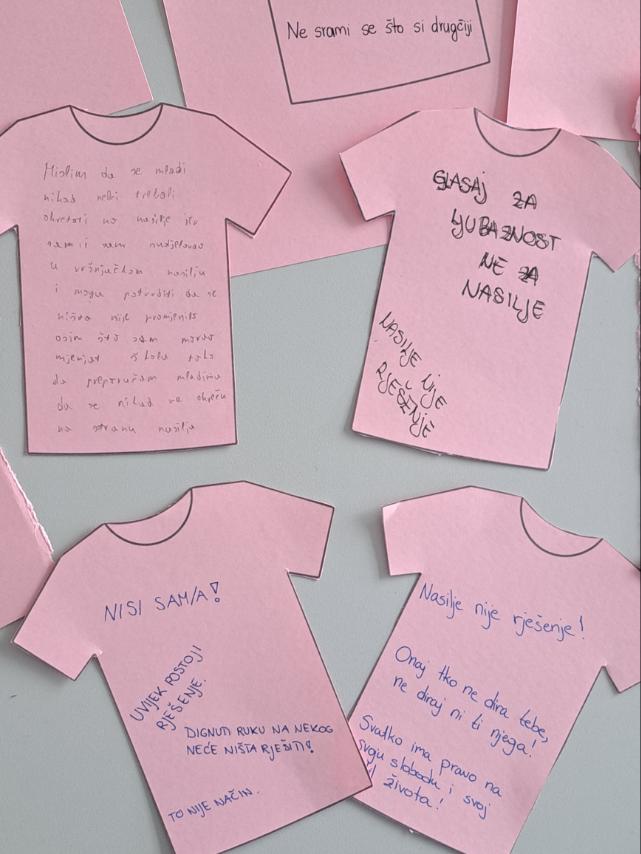 Ne srami se što si drugčiji
Mislim da se mladi
nikad nebi trebali
okretati na nasilje jer
sam i sam sudjelovao
u vršnjačkom nasilju
i mogu potvrditi da se
ništa nije promjenilo
osim što sam morao
mjenjat školu tako
da preporučam mladima
da se nikad ne okreću
na stranu nasilja
GLASAJ ZA
LJUBAZNOST
NE ZA
NASILJE
NASILJE NIJE
RJEŠENJE
NISI SAM/A!
UVIJEK POSTOJI
RJEŠENJE.
DIGNUTI RUKU NA NEKOG
NEĆE NIŠTA RJEŠITI!
TO NIJE NAČIN.
Nasilje nije rješenje!
Onaj tko ne dira tebe,
ne diraj ni ti njega!
Svatko ima pravo na
svoju slobodu i svoj
života!